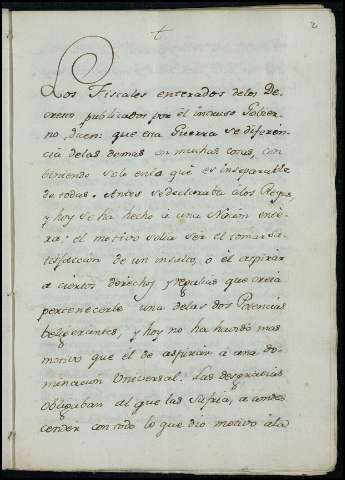 2
Los Fiscales enterados delos De-
cretos publicados por el intruso Gobier-
no, dicen: que esta Guerra se diferen-
cia delas demas en muchas cosas, con
biniendo solo enla que es inseparable
de todas. Antes sedeclaraba alos Reyes,
y hoy se ha hecho a una Nacion ente-
ra; el motivo solia ser el tomar sa-
tisfaccion de un insulto, ó el aspirar
a ciertos derechos y regalias que creia
pertenecerle una delas dos Potencias
beligerantes, y hoy no ha havido mas
motivo que él de aspirar a una do-
minacion Universal. Las desgracias
obligaban al que las sufria, a condes-
cender con todo lo que dio motivo ala